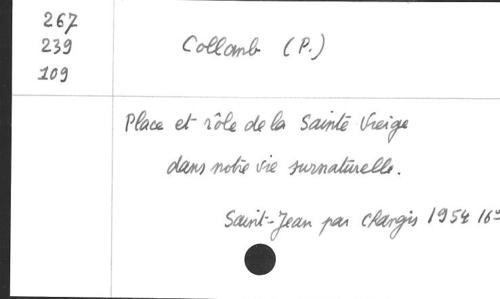 267
239
109
Collomb (P.)
Place et rôle de la Sainte Vierge
dans notre vie surnaturelle.
Saint-Jean par Changis 1954 16º